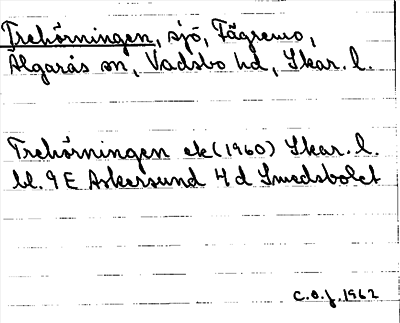 Trehörningen, sjö, Fägremo,
Älgarås sn, Vadsbo hd, Skar. l.
Trehörningen ek (1960) Skar. l.
bl. 9 E Askersund 4 d Smedsbolet
C.O.J. 1962